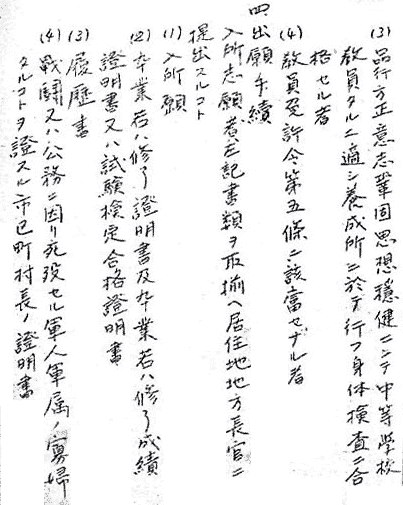 (3) 品行方正意志鞏固思想穏健ニシテ中等学校
教員タルニ適シ養成所ニ於テ行フ身体検査ニ合
格セル者
(4) 教員免許令第五條ニ該当セザル者
四、出願手續
入所志願者左記書類ヲ取揃ヘ居住地地方長官ニ
提出スルコト
(1) 入所願
(2) 卒業若ハ修了證明書及卒業若ハ修了成績
證明書又ハ試験検定合格證明書
(3) 履歴書
(4) 戰鬪又ハ公務ニ因リ死歿セル軍人軍属ノ寡婦
タルコトヲ證スル市区町村長ノ證明書